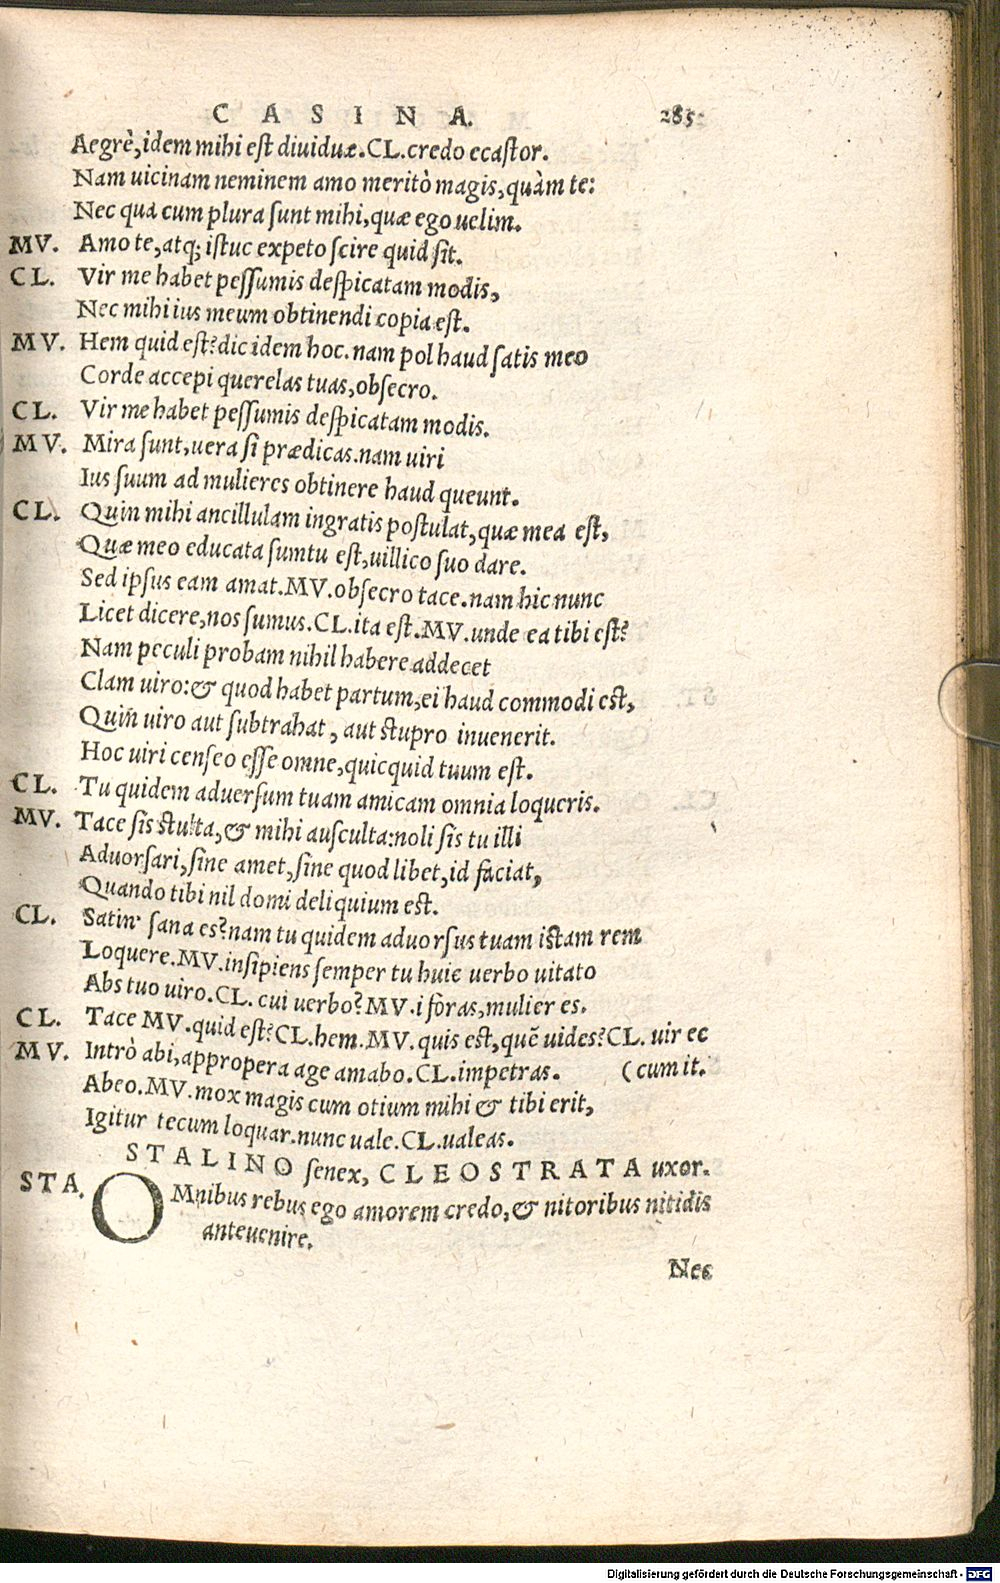 CASINA. 285
Aegrè, idem mihi est diuiduæ. CL. credo ecastor.
Nam uicinam neminem amo meritò magis, quàm te:
Nec qua cum plura sunt mihi, quæ ego uelim.
MV. Amo te, atq; istuc expeto scire quid sit.
CL. Vir me habet pessumis despicatam modis,
Nec mihi ius meum obtinendi copia est.
MV. Hem quid est? dic idem hoc. nam pol haud satis meo
Corde accepi querelas tuas, obsecro.
CL. Vir me habet pessumis despicatam modis.
MV. Mira sunt, uera si prædicas. nam uiri
Ius suum ad mulieres obtinere haud queunt.
CL. Quin mihi ancillulam ingratis postulat, quæ mea est,
Quæ meo educata sumtu est, uillico suo dare.
Sed ipsus eam amat. MV. obsecro tace. nam hic nunc
Licet dicere, nos sumus. CL. ita est. MV. unde ea tibi est?
Nam peculi probam nihil habere addecet
Clam uiro: & quod habet partum, ei haud commodi est,
Quin uiro aut subtrahat, aut stupro inuenerit.
Hoc uiri censeo esse omne, quicquid tuum est.
CL. Tu quidem aduersum tuam amicam omnia loqueris.
MV. Tace sis stulta, & mihi ausculta: noli sis tu illi
Aduorsari, sine amet, sine quod libet, id faciat,
Quando tibi nil domi deliquium est.
CL. Satin' sana es? nam tu quidem aduorsus tuam istam rem
Loquere. MV. insipiens semper tu huic uerbo uitato
Abs tuo uiro. CL. cui uerbo? MV. i foras, mulier es.
CL. Tace MV. quid est? CL. hem. MV. quis est, quē uides? CL. uir ec
MV. Intrò abi, appropera age amabo. CL. impetras. (cum it.
Abeo. MV. mox magis cum otium mihi & tibi erit,
Igitur tecum loquar. nunc uale. CL. ualeas.
STALINO senex, CLEOSTRATA uxor.
STA. OMnibus rebus ego amorem credo, & nitoribus nitidis
anteuenire.
Nec
Digitalisierung gefördert durch die Deutsche Forschungsgemeinschaft - DFG